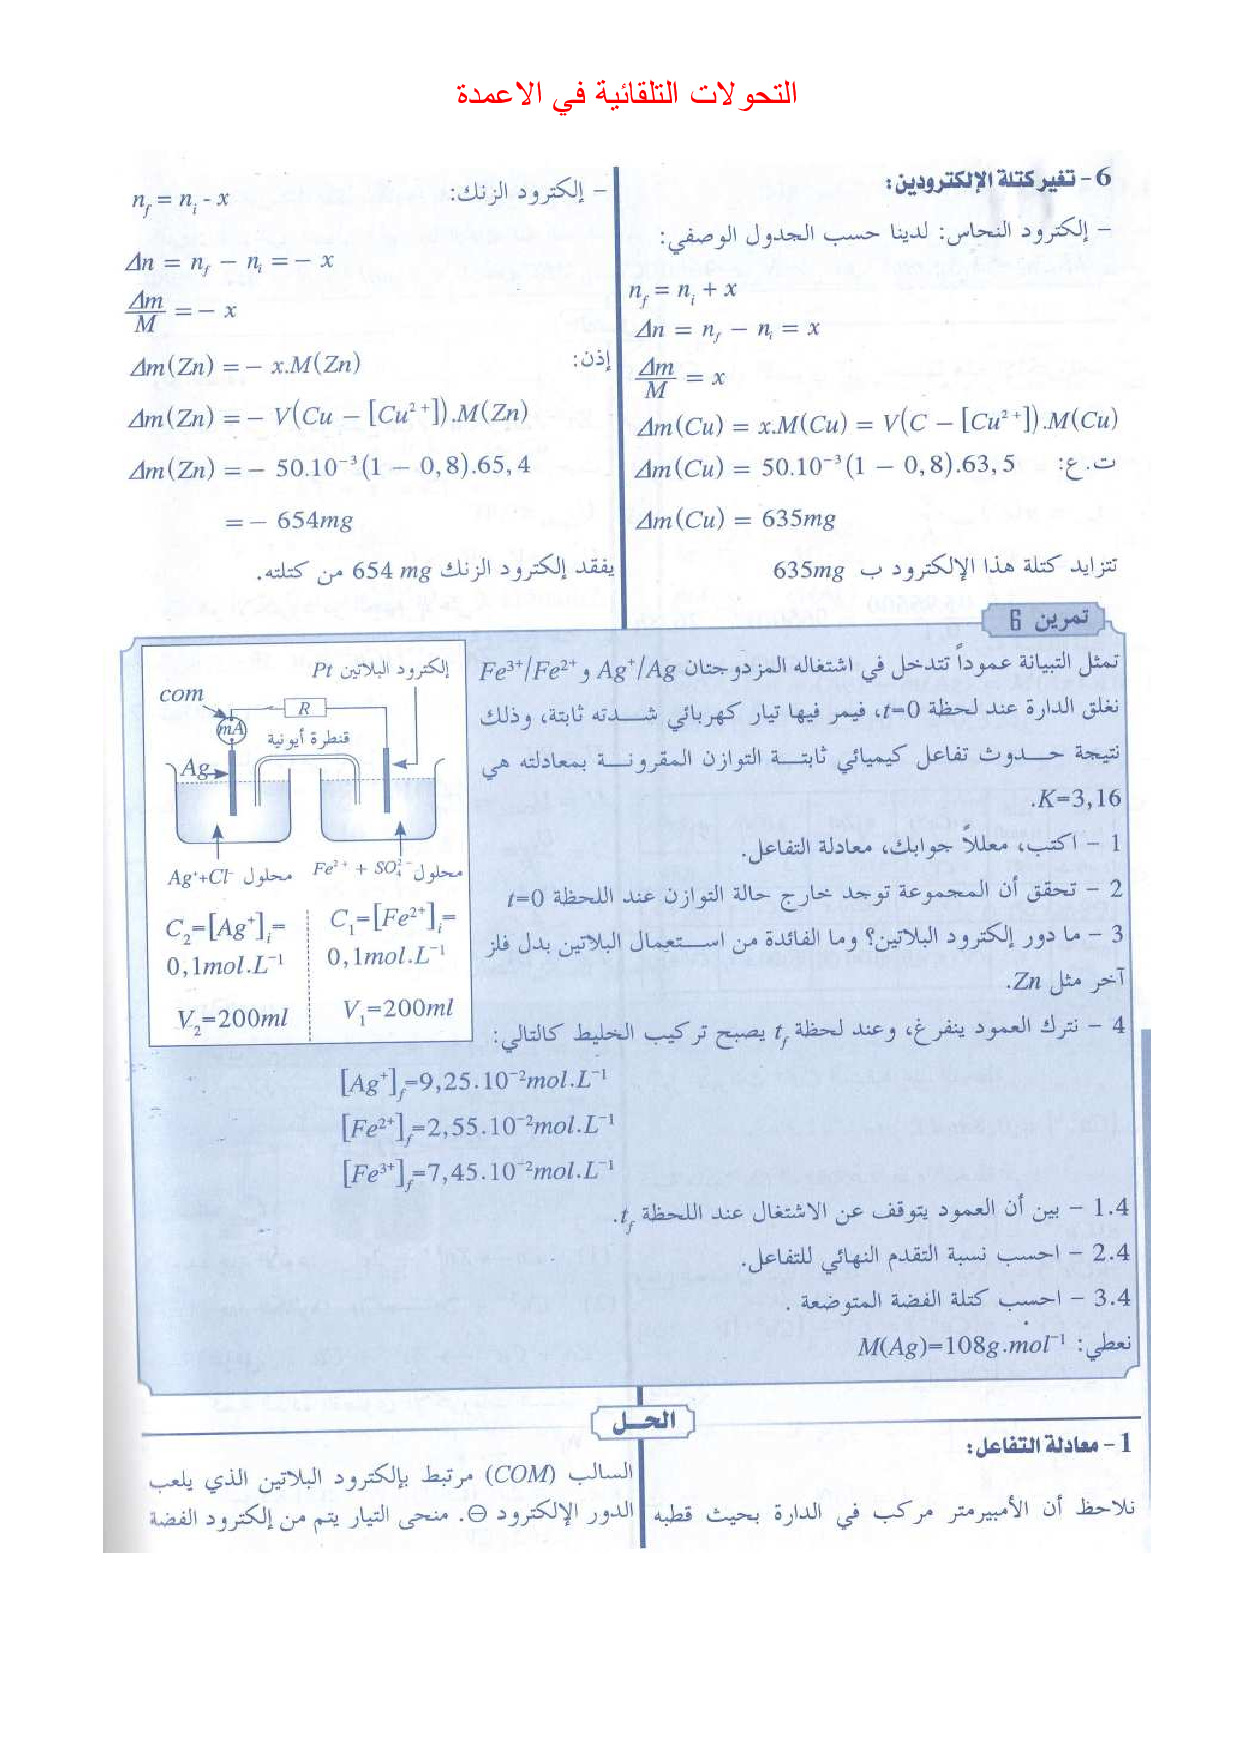 التحولات التلقائية في الاعمدة
6- تغير كتلة الإلكترودين:
– إلكترود النحاس: لدينا حسب الجدول الوصفي:
n_f = n_i + x
Δn = n_f − n_i = x
Δm/M = x
Δm(Cu) = x.M(Cu) = V(C − [Cu²⁺]).M(Cu)
ت.ع: Δm(Cu) = 50.10⁻³(1 − 0,8).63,5
Δm(Cu) = 635mg
تتزايد كتلة هذا الإلكترود ب 635mg
– إلكترود الزنك: n_f = n_i - x
Δn = n_f − n_i = − x
Δm/M = − x
إذن: Δm(Zn) = − x.M(Zn)
Δm(Zn) = − V(Cu − [Cu²⁺]).M(Zn)
Δm(Zn) = − 50.10⁻³(1 − 0,8).65,4
= − 654mg
يفقد إلكترود الزنك 654 mg من كتلته.
تمرين 6
تمثل التبيانة عموداً تتدخل في اشتغاله المزدوجتان Ag⁺/Ag و Fe³⁺/Fe²⁺
نغلق الدارة عند لحظة t=0، فيمر فيها تيار كهربائي شدته ثابتة، وذلك
نتيجة حدوث تفاعل كيميائي ثابتة التوازن المقرونة بمعادلته هي
K=3,16.
1 – اكتب، معللاً جوابك، معادلة التفاعل.
2 – تحقق أن المجموعة توجد خارج حالة التوازن عند اللحظة t=0
3 – ما دور إلكترود البلاتين؟ وما الفائدة من استعمال البلاتين بدل فلز
آخر مثل Zn.
4 – نترك العمود ينفرغ، وعند لحظة t_f يصبح تركيب الخليط كالتالي:
[Ag⁺]_f=9,25.10⁻²mol.L⁻¹
[Fe²⁺]_f=2,55.10⁻²mol.L⁻¹
[Fe³⁺]_f=7,45.10⁻²mol.L⁻¹
1.4 – بين أن العمود يتوقف عن الاشتغال عند اللحظة t_f.
2.4 – احسب نسبة التقدم النهائي للتفاعل.
3.4 – احسب كتلة الفضة المتوضعة .
نعطي: M(Ag)=108g.mol⁻¹
إلكترود البلاتين Pt
com
R
mA
قنطرة أيونية
Ag
محلول Ag⁺+Cl⁻
محلول Fe²⁺ + SO₄²⁻
C₂=[Ag⁺]_i=
0,1mol.L⁻¹
V₂=200ml
C₁=[Fe²⁺]_i=
0,1mol.L⁻¹
V₁=200ml
الحل
1- معادلة التفاعل:
نلاحظ أن الأمبيرمتر مركب في الدارة بحيث قطبه
السالب (COM) مرتبط بإلكترود البلاتين الذي يلعب
الدور الإلكترود ⊖. منحى التيار يتم من إلكترود الفضة